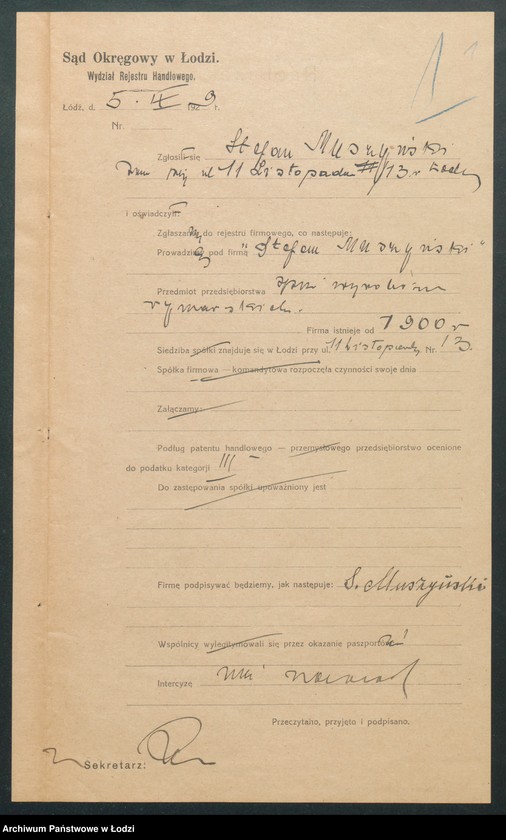 1
Sąd Okręgowy w Łodzi.
Wydział Rejestru Handlowego.
Łódź, d. 5. IX 1929 r.
Nr.
Zgłosili się Stefan Muszyński
zam. przy ul 11 Listopada # 13 w Łodzi
i oświadczył
Zgłaszam do rejestru firmowego, co następuje:
Prowadzę pod firmą "Stefan Muszyński"
Przedmiot przedsiębiorstwa wyrobów
rymarskich.
Firma istnieje od 1900 r
Siedziba spółki znajduje się w Łodzi przy ul. 11 Listopada Nr. 13.
Spółka firmowa — komandytowa rozpoczęła czynności swoje dnia
Załączamy:
Podług patentu handlowego — przemysłowego przedsiębiorstwo ocenione
do podatku kategorji III
Do zastępowania spółki upoważniony jest
Firmę podpisywać będziemy, jak następuje: S. Muszyński
Wspólnicy wylegitymowali się przez okazanie paszportów
Intercyzę nie zawarł
Przeczytano, przyjęto i podpisano.
Sekretarz:
Archiwum Państwowe w Łodzi